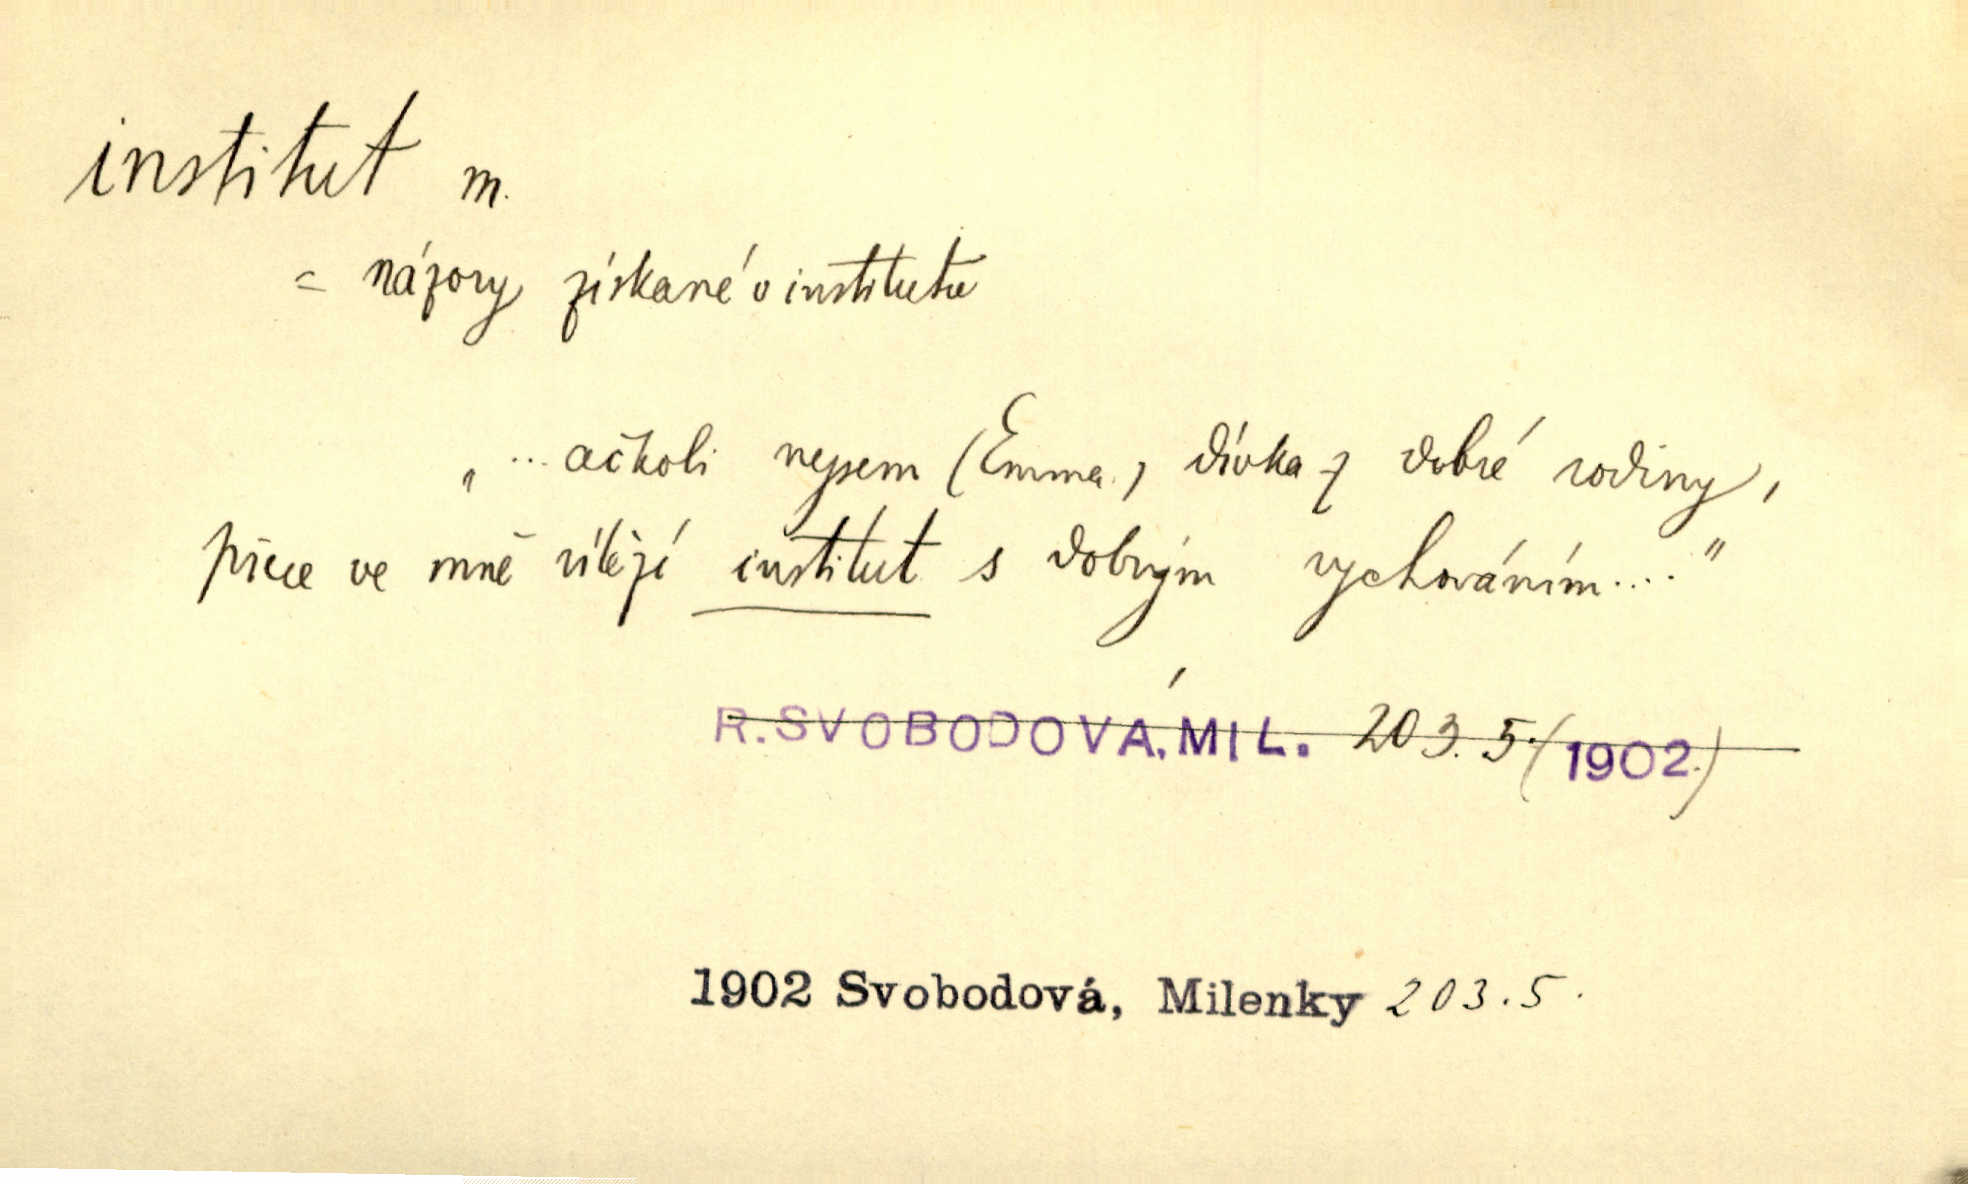 institut m.
= názory získané v institutu
„ ... ačkoli nejsem (Emma.) dívka z dobré rodiny,
přece ve mně vítězí institut s dobrým vychováním...."
R. SVOBODOVÁ, MIL. 203. 5. (1902.)
1902 Svobodová, Milenky 203.5.